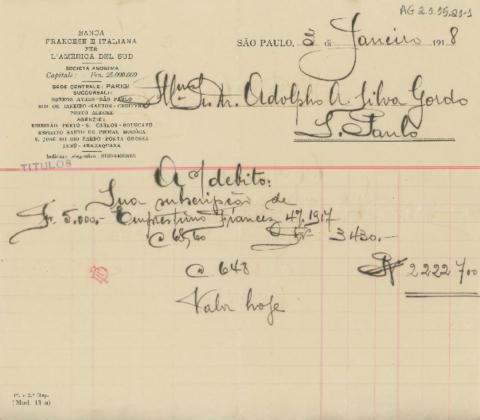 AG 2.1.15.21-1
BANCA
FRANCESE E ITALIANA
PER
L'AMERICA DEL SUD
SOCIETÀ ANONIMA
Capitale: Frs. 25.000.000
SEDE CENTRALE: PARIGI
SUCCURSALI:
BUENOS AYRES - SÃO PAULO
RIO DE JANEIRO - SANTOS - CURITYBA
PORTO ALEGRE
AGENZIE:
RIBEIRÃO PRETO - S. CARLOS - BOTUCATÚ
ESPIRITO SANTO DO PINHAL MOCÓCA
S. JOSÉ DO RIO PARDO PONTA GROSSA
JAHÚ - ARARAQUARA
Indirizzo telegrafico: SUDAMERIS
TITULOS
SÃO PAULO, de di Janeiro 1918
Illmo. Sr. Dr. Adolpho A. Silva Gordo
S. Paulo
A s/ debito:
Sua subscripção de
Fr. 5.000.- Emprestimo Francez 4% 1917
a 68,60 Fr 3430.-
a 648 2222 700
Valor hoje
(Mod. 13 a)